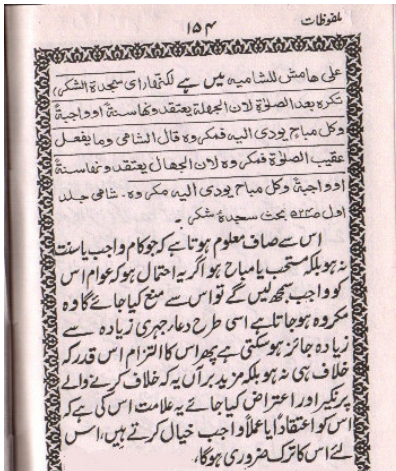 ملفوظات
۱۵۴
علی ھامش للشامیہ میں ہے لکنتھا رای سجدۃ الشکر)
تکرہ بعد الصلوٰۃ لان الجھلۃ یعتقدونھا سنۃ او واجبۃ
وکل مباح یودی الیہ فمکروہ قال الشامی وما یفعل
عقیب الصلوٰۃ فمکروہ لان الجھال یعتقدونھا سنۃ
او واجبۃ وکل مباح یودی الیہ مکروہ۔ شامی جلد
اول بحث سجدۂ شکر۔
اس سے صاف معلوم ہوتا ہے کہ جو کام واجب یا سنت
نہ ہو بلکہ مستحب یا مباح ہو اگر یہ احتمال ہو کہ عوام اس
کو واجب سمجھ لیں گے تو اس سے منع کیا جائے گا وہ
مکروہ ہو جاتا ہے اسی طرح دعاء جہری زیادہ سے
زیادہ جائز ہو سکتی ہے پھر اس کا التزام اس قدر کہ
خلاف ہی نہ ہو بلکہ مزید برآں یہ کہ خلاف کرنے والے
پر نکیر اور اعتراض کیا جائے یہ علامت اس کی ہے کہ
اس کو اعتقاداً یا عملاً واجب خیال کرتے ہیں، اس
لئے اس کا ترک ضروری ہو گا،